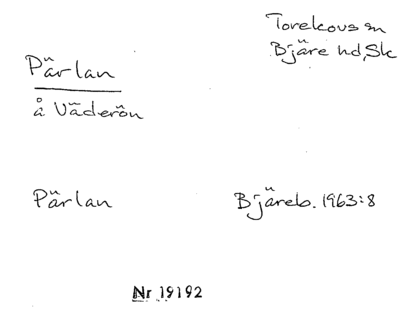 Torekovs sn
Bjäre hd, Sk
Pärlan
å Väderön
Pärlan Bjäreb. 1963:8
Nr 19192